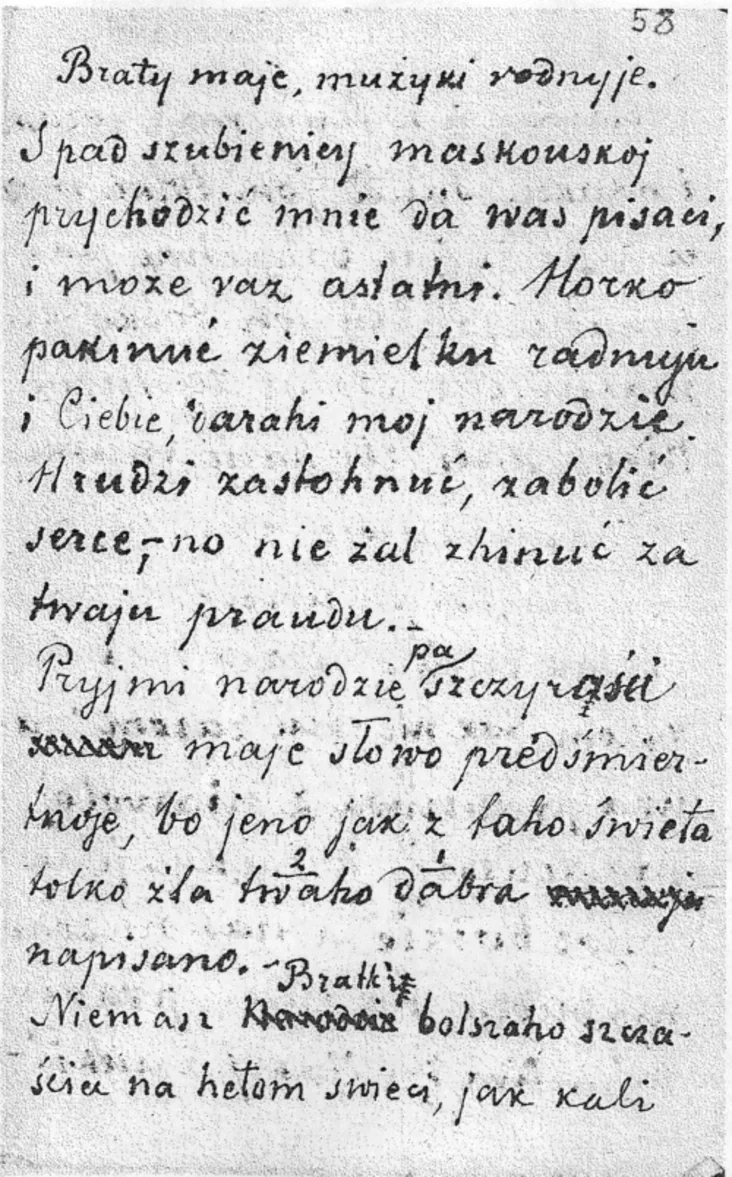 58
Braty maje, mużyki rodnyje.
Spad szubienicy maskouskoj
prychodzić mnie da was pisaci,
i może raz astatni. Horko
pakinuć ziemielku radnuju
i Ciebie, darahi moj narodzie.
Hrudzi zastohnuć, zabolić
serce,– no nie żal zhinuć za
twaju praudu.–
pa
Pryjmi narodzie szczyraści
maje słowo predśmier-
tnoje, bo jeno jak z taho świeta
2 1
tolko dla twaho dabra
napisano.–
Bratki
Niemasz bolszaho szcza-
ścia na hetom swieci, jak kali